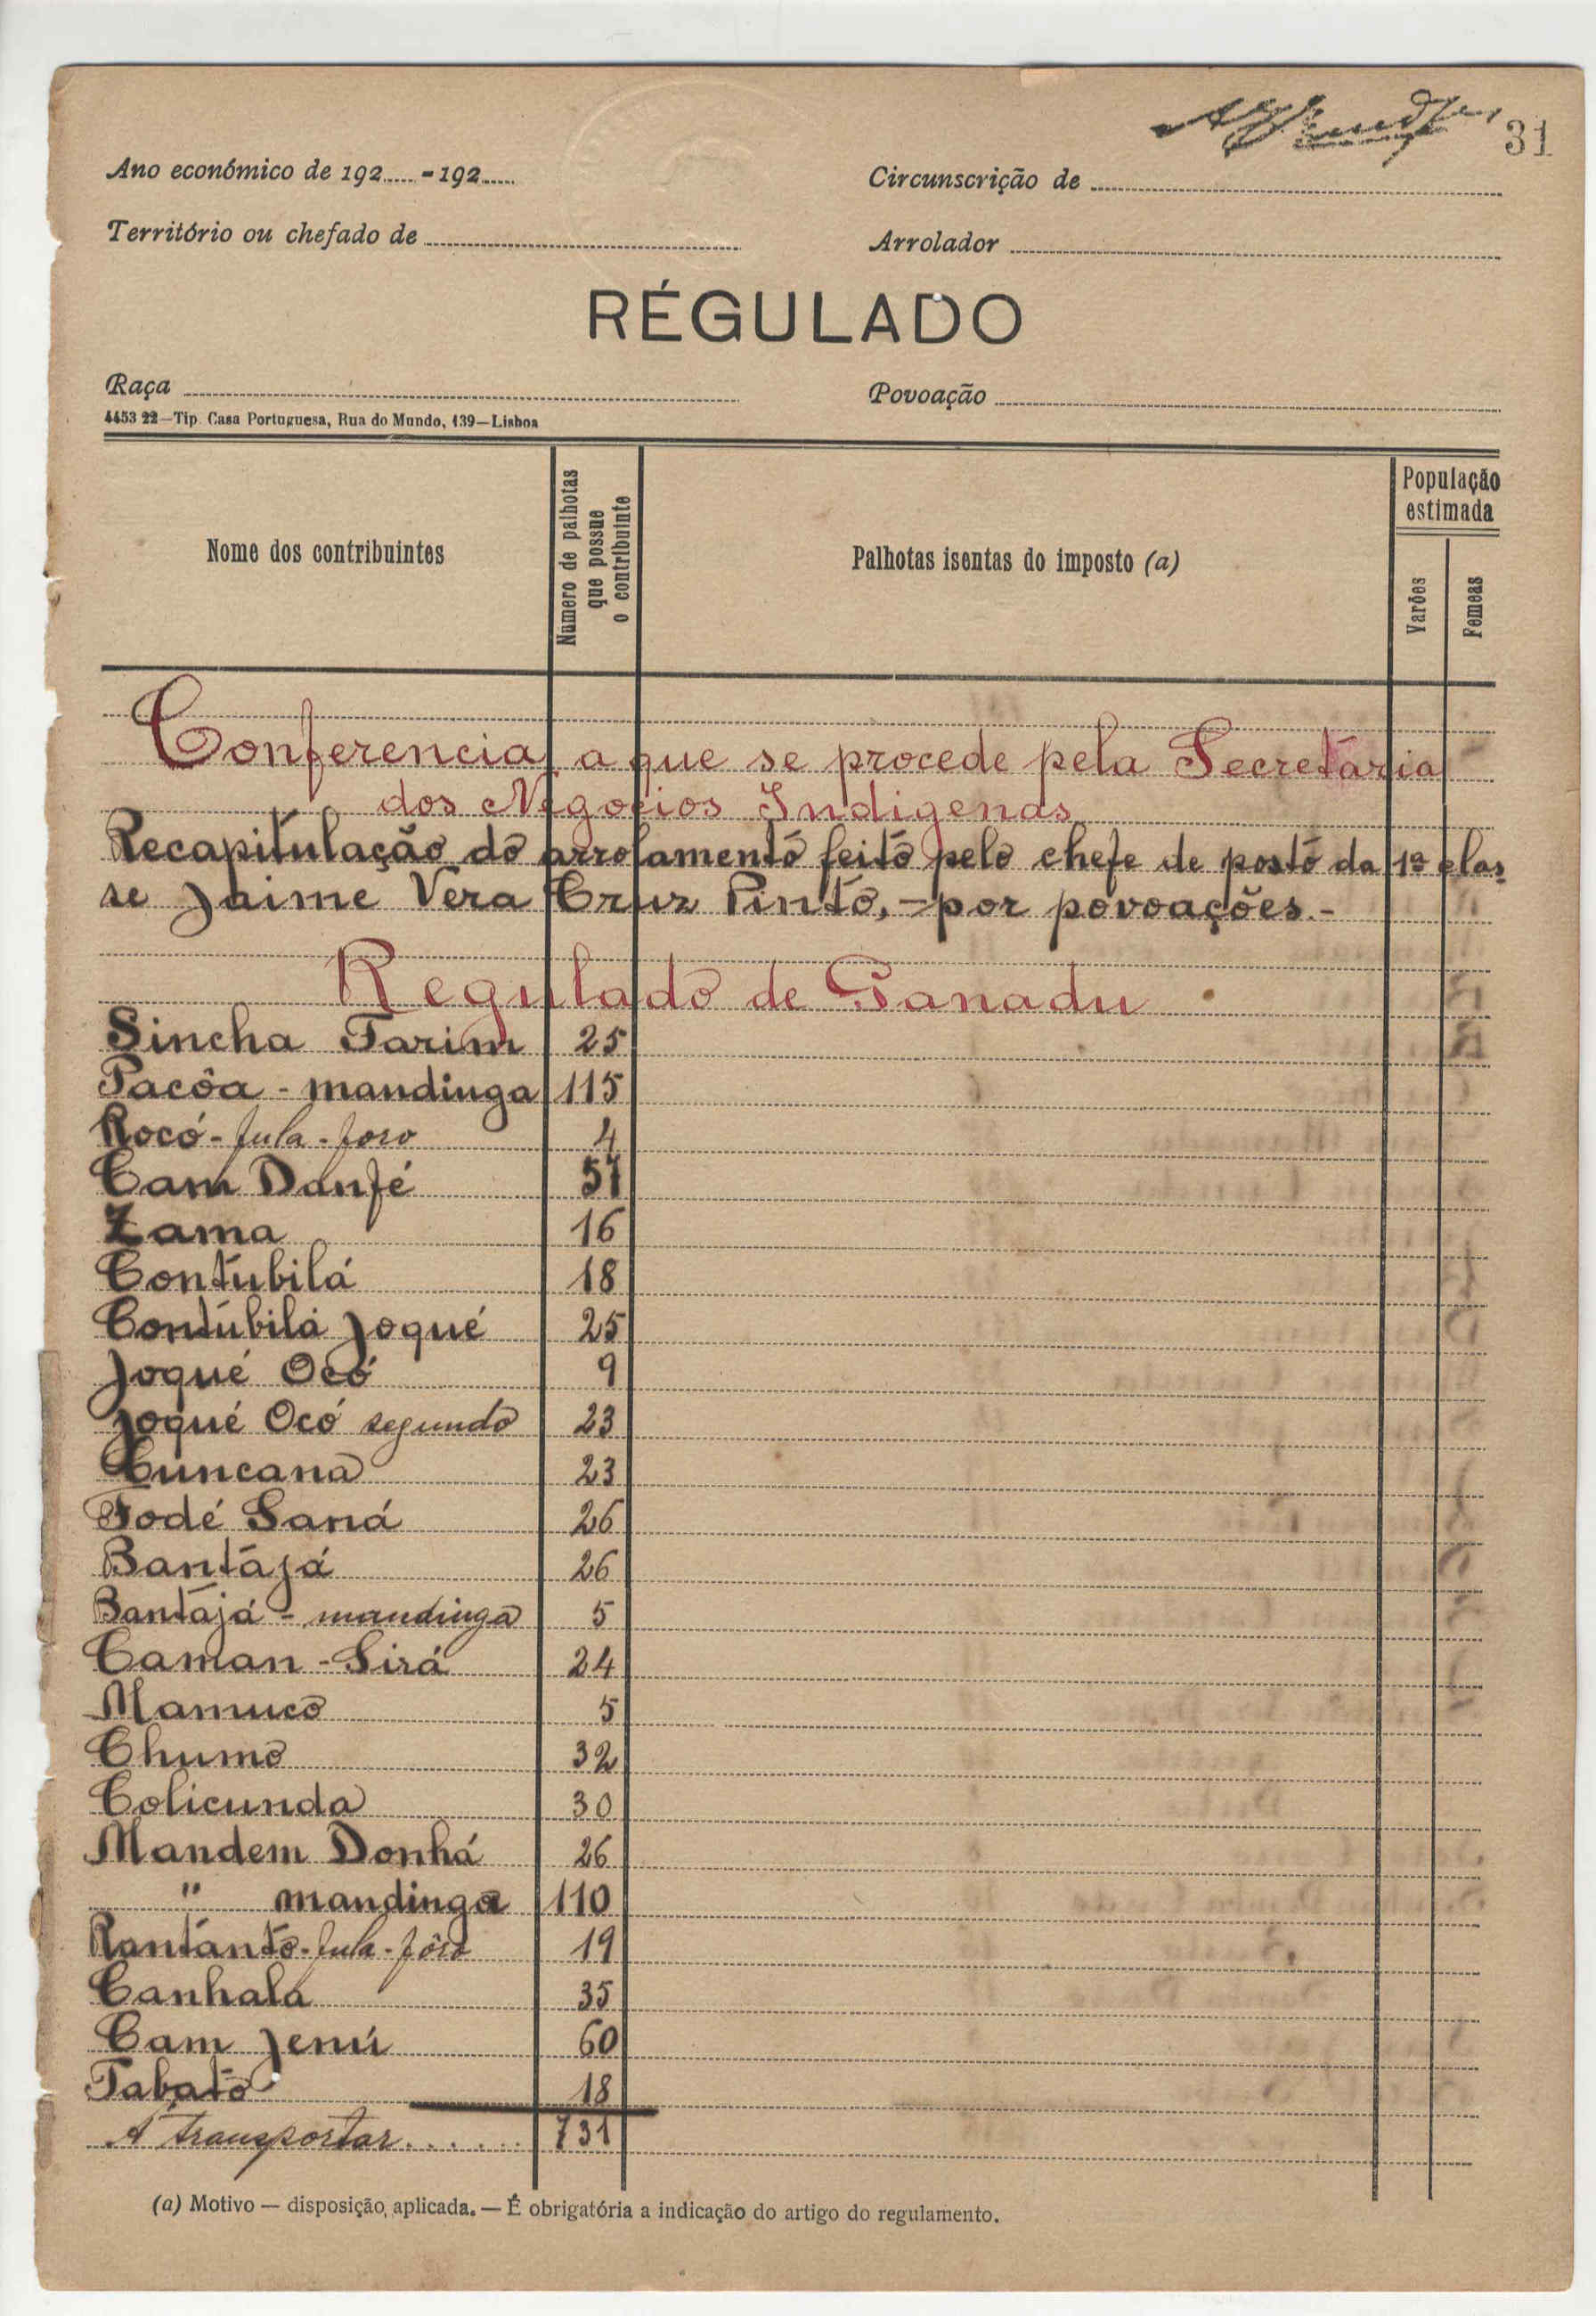 31
Ano económico de 192...... - 192......
Circunscrição de
Território ou chefado de
Arrolador
RÉGULADO
Raça
Povoação
4453 22—Tip. Casa Portuguesa, Rua do Mundo, 139—Lisboa
Nome dos contribuintes
Número de palhotas que possue o contribuinte
Palhotas isentas do imposto (a)
População estimada
Varões
Femeas
Conferencia a que se procede pela Secretaria
dos Negocios Indigenas
Recapitulação do arrolamento feito pelo chefe de posto da 1ª clas-
se Jaime Vera Cruz Pinto, = por povoações.-
Regulado de Ganadu
Sincha Farim 25
Pacôa - mandinga 115
Rocó - fula - foro 4
Cam Danfé 57
Zama 16
Contubilá 18
Contubilá Joqué 25
Joqué Ocó 9
Joqué Ocó segundo 23
Cuncana 23
Fodé Saná 26
Bantájá 26
Bantájá - mandinga 5
Caman - Sirá 24
Mamuco 5
Chumo 32
Colicunda 30
Mandem Donhá 26
" mandinga 110
Rantanto - fula - fôro 19
Canhala 35
Cam Jenú 60
Tabato 18
A transportar...... 731
(a) Motivo — disposição aplicada. — É obrigatória a indicação do artigo do regulamento.